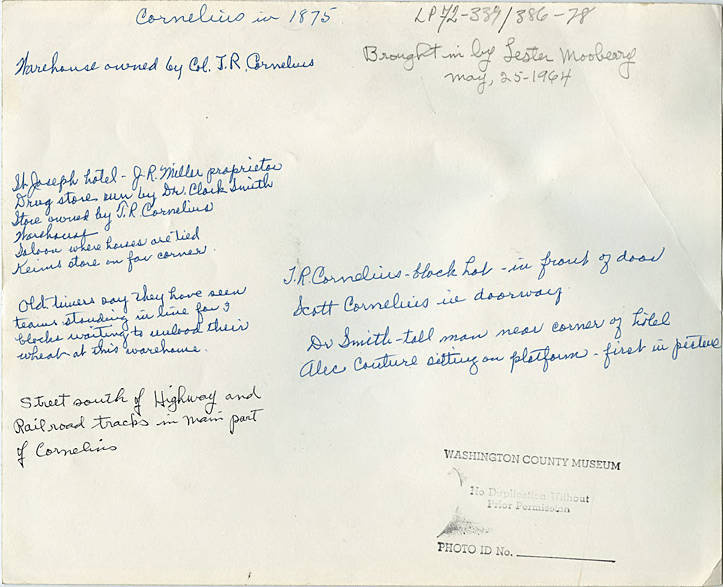 Cornelius in 1875
LP72-339/386-78
Warehouse owned by Col. T.R. Cornelius
Brought in by Lester Mooberry
may, 25-1964
St. Joseph hotel - J.R. Miller proprietor
Drug store run by Dr. Clark Smith
Store owned by T.R. Cornelius
Warehouse
Saloon where horses are tied
Keims store on far corner.
Old timers say they have seen
teams standing in line for 3
blocks waiting to unload their
wheat at this warehouse.
Street south of Highway and
Railroad tracks in main part
of Cornelius
T.R. Cornelius - black hat - in front of door
Scott Cornelius in doorway
Dr Smith - tall man near corner of hotel
Alec Couture sitting on platform - first in picture
WASHINGTON COUNTY MUSEUM
No Duplication Without
Prior Permission
PHOTO ID No.